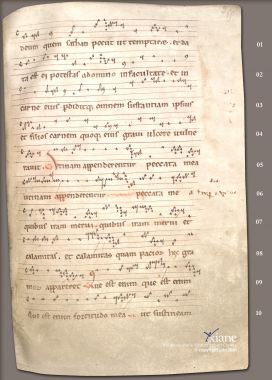 deum quem sathan peciit ut temptaret. et da
ta est ei potestas a domino in facultate. et in
carne eius
omnem substantiam ipsius
et filios carnem quoque eius graui ulcere uulne
rauit. Utinam appenderentur peccata mea
utinam appenderentur peccata me a
quibus iram merui. quibus iram merui et
calamitas. et calamitas quam patior hec gra
uior appareret. Que est enim que est enim
Que est enim fortitudo mea ut sustineam
01
02
03
04
05
06
07
08
09
10
Axiane